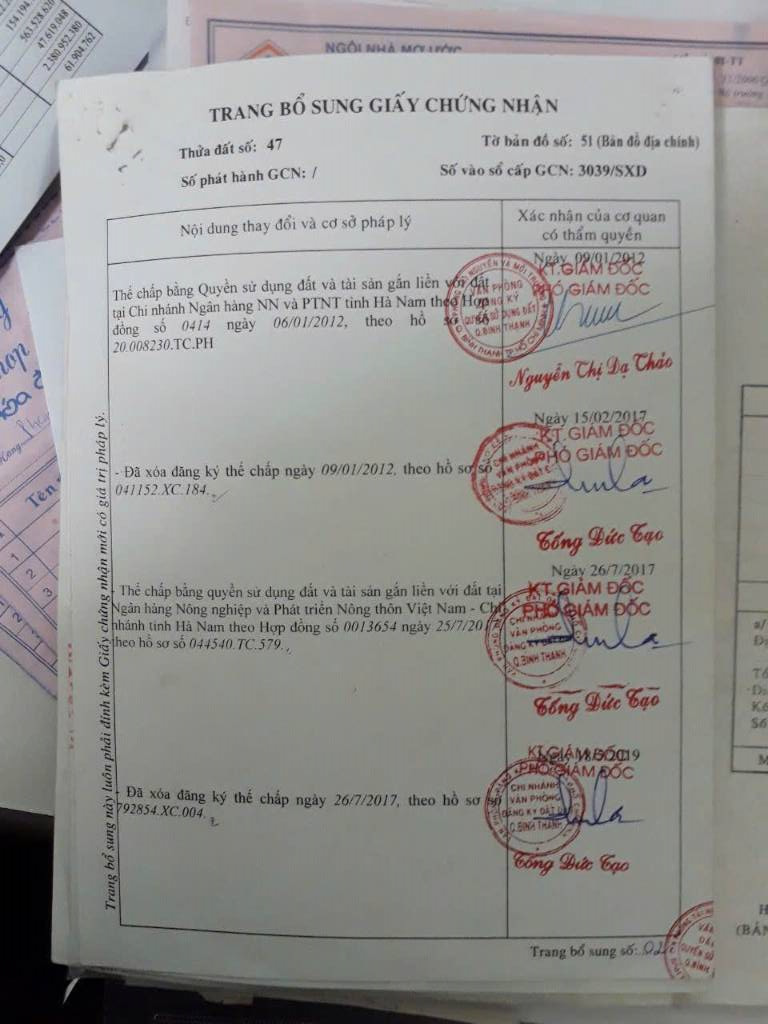 154.194
563.528.620
47.619.048
2.380.952.380
61.904.762
NGÔI NHÀ MƠ ƯỚC
TRANG BỔ SUNG GIẤY CHỨNG NHẬN
Thửa đất số: 47
Tờ bản đồ số: 51 (Bản đồ địa chính)
Số phát hành GCN: /
Số vào sổ cấp GCN: 3039/SXD
Nội dung thay đổi và cơ sở pháp lý
Xác nhận của cơ quan
có thẩm quyền
Thế chấp bằng Quyền sử dụng đất và tài sản gắn liền với đất
tại Chi nhánh Ngân hàng NN và PTNT tỉnh Hà Nam theo Hợp
đồng số 0414 ngày 06/01/2012, theo hồ sơ số
20.008230.TC.PH
Ngày 09/01/2012
KT.GIÁM ĐỐC
PHÓ GIÁM ĐỐC
VĂN PHÒNG
ĐĂNG KÝ
QUYỀN SỬ DỤNG ĐẤT
Q.BÌNH THẠNH
Nguyễn Thị Dạ Thảo
- Đã xóa đăng ký thế chấp ngày 09/01/2012, theo hồ sơ số
041152.XC.184.
Ngày 15/02/2017
KT.GIÁM ĐỐC
PHÓ GIÁM ĐỐC
CHI NHÁNH
VĂN PHÒNG
ĐĂNG KÝ ĐẤT Đ
Q.BÌNH THẠNH
Tống Đức Tạo
- Thế chấp bằng quyền sử dụng đất và tài sản gắn liền với đất tại
Ngân hàng Nông nghiệp và Phát triển Nông thôn Việt Nam - Chi
nhánh tỉnh Hà Nam theo Hợp đồng số 0013654 ngày 25/7/20
theo hồ sơ số 044540.TC.579.
Ngày 26/7/2017
KT.GIÁM ĐỐC
PHÓ GIÁM ĐỐC
CHI NHÁNH
VĂN PHÒNG
ĐĂNG KÝ ĐẤT ĐAI
Q.BÌNH THẠNH
Tống Đức Tạo
- Đã xóa đăng ký thế chấp ngày 26/7/2017, theo hồ sơ số
792854.XC.004.
KT.GIÁM ĐỐC
PHÓ GIÁM ĐỐC
CHI NHÁNH
VĂN PHÒNG
ĐĂNG KÝ ĐẤT ĐAI
Q.BÌNH THẠNH
Tống Đức Tạo
Trang bổ sung này luôn phải đính kèm Giấy chứng nhận mới có giá trị pháp lý.
Trang bổ sung số: 02
Tên